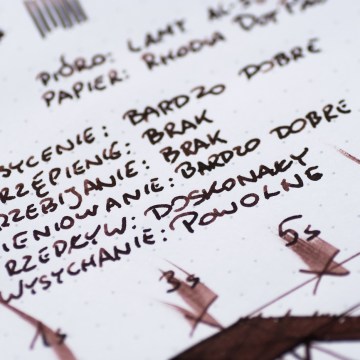 PIÓRO: LAMY AL-
PAPIER: RHODIA DOT PA
SYCENIE: BARDZO DOBRE
RZĘPIENIE: BRAK
RZEBIJANIE: BRAK
IENIOWANIE: BARDZO DOBRE
RZEDRYW: DOSKONAŁY
WYSYCHANIE: POWOLNE
1s 3s 5s